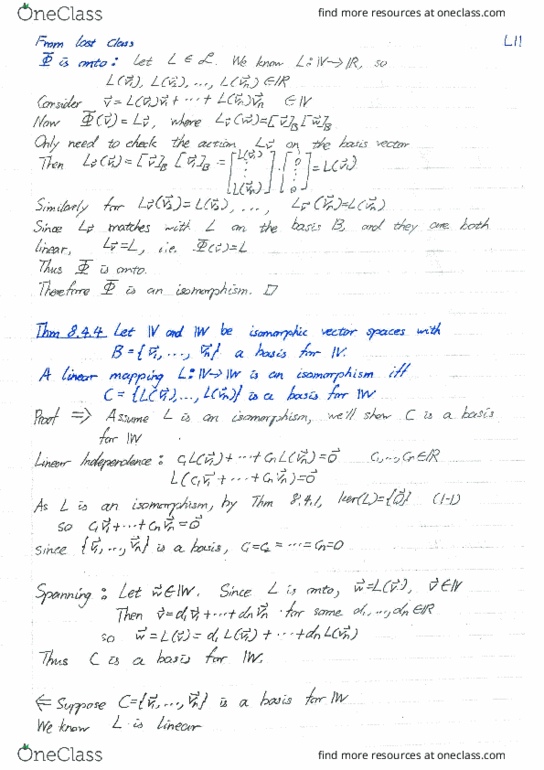 OneClass find more resources at oneclass.com
From last class L11
Φ is onto: Let L ∈ ℒ. We know L: 𝕍→ℝ, so
L(v⃗₁), L(v⃗₂), ..., L(v⃗ₙ) ∈ ℝ
Consider v⃗ = L(v⃗₁)v⃗₁ + ⋯ + L(v⃗ₙ)v⃗ₙ ∈ 𝕍
Now Φ(v⃗) = Lᵥ⃗, where Lᵥ⃗(w⃗) = [v⃗]_B [w⃗]_B
Only need to check the action Lᵥ⃗ on the basis vector
Then Lᵥ⃗(v⃗₁) = [v⃗]_B [v⃗₁]_B = [L(v⃗₁) ⋮ L(v⃗ₙ)] · [⋮ 0] = L(v⃗₁)
Similarly for Lᵥ⃗(v⃗₂) = L(v⃗₂), ..., Lᵥ⃗(v⃗ₙ) = L(v⃗ₙ)
Since Lᵥ⃗ matches with L on the basis B, and they are both
linear, Lᵥ⃗ = L, i.e. Φ(v⃗) = L
Thus Φ is onto.
Therefore Φ is an isomorphism. □
Thm 8.4.4 Let 𝕍 and 𝕎 be isomorphic vector spaces with
B = {v⃗₁, ..., v⃗ₙ} a basis for 𝕍.
A linear mapping L: 𝕍→𝕎 is an isomorphism iff
C = {L(v⃗₁), ..., L(v⃗ₙ)} is a basis for 𝕎
Proof ⟹ Assume L is an isomorphism, we'll show C is a basis
for 𝕎
Linear Independence: c₁L(v⃗₁) + ⋯ + cₙL(v⃗ₙ) = 0⃗ c₁, ..., cₙ ∈ ℝ
L(c₁v⃗₁ + ⋯ + cₙv⃗ₙ) = 0⃗
As L is an isomorphism, by Thm 8.4.1, ker(L) = {0⃗} (1-1)
so c₁v⃗₁ + ⋯ + cₙv⃗ₙ = 0⃗
since {v⃗₁, ..., v⃗ₙ} is a basis, c₁ = c₂ = ⋯ = cₙ = 0
Spanning: Let w⃗ ∈ 𝕎. Since L is onto, w⃗ = L(v⃗), v⃗ ∈ 𝕍
Then v⃗ = d₁v⃗₁ + ⋯ + dₙv⃗ₙ for some d₁, ..., dₙ ∈ ℝ
so w⃗ = L(v⃗) = d₁L(v⃗₁) + ⋯ + dₙL(v⃗ₙ)
Thus C is a basis for 𝕎.
⟸ Suppose C = {v⃗₁, ..., v⃗ₙ} is a basis for 𝕎
We know L is linear
OneClass find more resources at oneclass.com